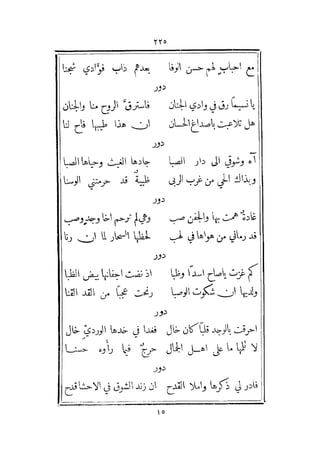 ٢٢٥
مع احبابٍ لهم حسن الوفا بعدهم ذاب فؤادي شجنا
دور
يا نسيماً رق في وادي الجنان فاسترقَّ الروح منا والجنان
هل تلاعبت باصداغ الحسان ان هذا طيبها فاح لنا
دور
آهِ وشوقي الى دار الصبا جادها الغيث وحياها الصبا
وبذاك الحي من غرب الربى ظبيةٌ قد حرمتني الوسنا
دور
غادةٌ همت بها والجفن صب وهي لم ترحم اخا وجدٍ وصب
قد رماني من هواها في لهب لحظها السحار لما ان رنا
دور
كم غزت ياصاح اسداً وظبا اذ نضت اجفانها بيض الظبا
ولديها ان شكوت الوصبا رنحت عجباً من القد القنا
دور
احرقت بالوجد قلباً كان خال فغدا في خدها الورديّ خال
لا تلمها ما على اهل الجمال حرجٌ فيما رأوه حسنا
دور
فادر لي ذكرها واملا القدح ان زند الشوق في الاحشا قدح
١٥